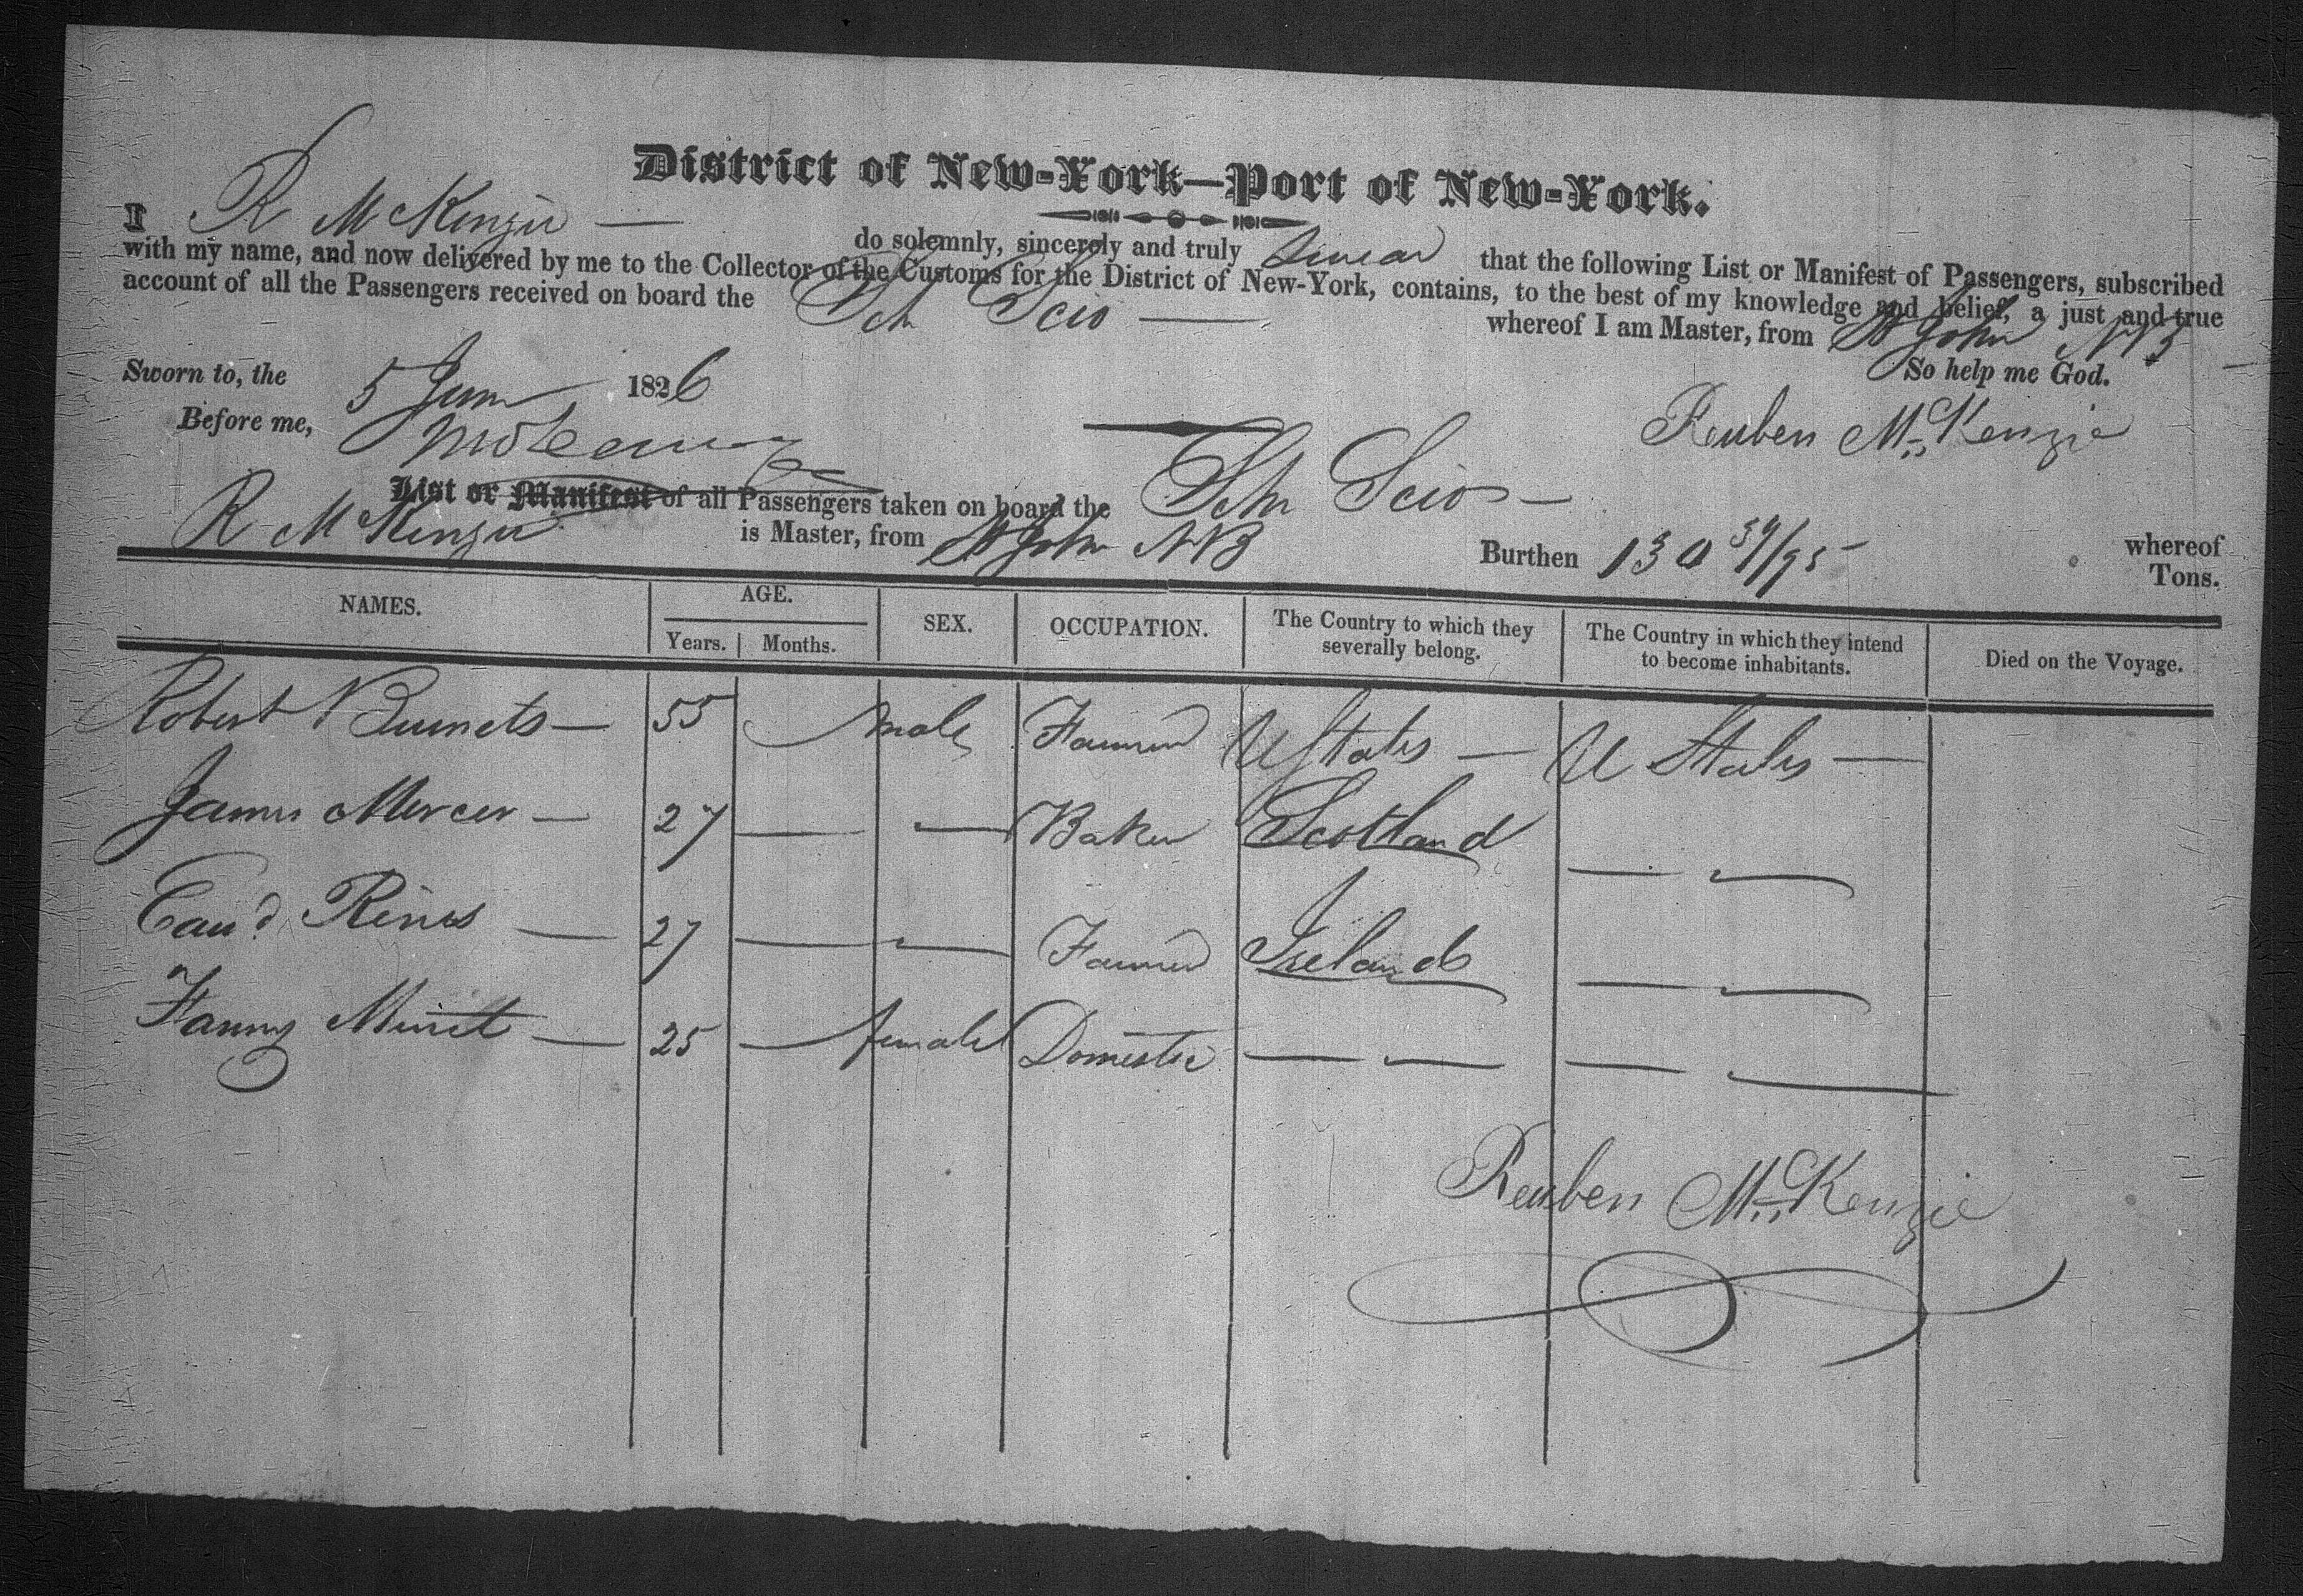 District of New-York—Port of New-York.
I R McKenzie — do solemnly, sincerely and truly swear that the following List or Manifest of Passengers, subscribed
with my name, and now delivered by me to the Collector of the Customs for the District of New-York, contains, to the best of my knowledge and belief, a just and true
account of all the Passengers received on board the Sch Scio — whereof I am Master, from St John NB
So help me God.
Sworn to, the 5 June 1826
Before me,
Reuben McKenzie
List or Manifest of all Passengers taken on board the Schr Scio — whereof
R McKenzie is Master, from St John NB Burthen 130 34/95 Tons.
NAMES. AGE. SEX. OCCUPATION. The Country to which they severally belong. The Country in which they intend to become inhabitants. Died on the Voyage.
Years. Months.
Robert — 55 male Farmer U States — U States —
James Mercer — 27 — — Baker Scotland — —
Rines — 27 — — Farmer Ireland — —
Fanny — 25 — female Domestic — — — —
Reuben McKenzie